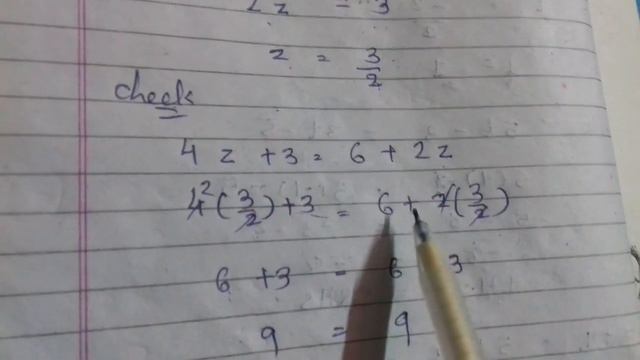 2z = 3
z = 3/2
check
4z + 3 = 6 + 2z
4²(3/2) + 3 = 6 + 2(3/2)
6 + 3 = 6 3
9 = 9